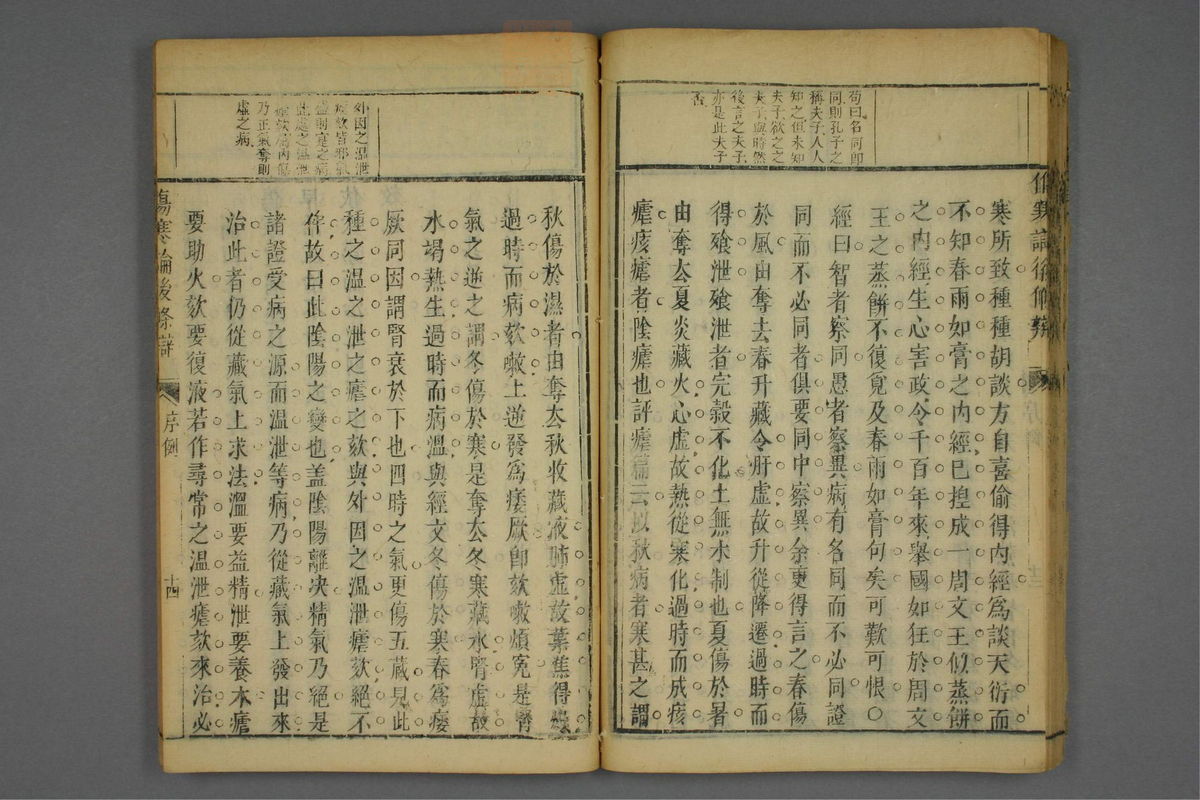 苟曰名同即
同則孔子之
稱夫子人人
知之但未知
夫子欲之之
夫子與時然
後言之夫子
亦是此夫子
否
寒所致種種胡談方自喜偷得内經爲談天衍而
不知春雨如膏之内經已揑成一周文王似蒸餅
之内經生心害政令千百年來舉國如狂於周文
王之蒸餅不復覓及春雨如膏句矣可歎可恨○
經曰智者察同愚者察異病有名同而不必同證
同而不必同者俱要同中察異余更得言之春傷
於風由奪去春升藏令肝虛故升從降遷過時而
得飱泄飱泄者完穀不化土無木制也夏傷於暑
由奪去夏炎藏火心虛故熱從寒化過時而成痎
瘧痎瘧者陰瘧也評瘧篇云以秋病者寒甚之謂
外因之温泄
瘧欬皆邪氣
盛則實之病
此處之温泄
瘧欬屬内傷
乃正氣奪則
虛之病
秋傷於濕者由奪去秋收藏液肺虛故葉焦得燥
過時而病欬嗽上逆發爲痿厥卽欬嗽煩寃是腎
氣之逆之謂冬傷於寒是奪去冬寒藏水腎虛故
水竭熱生過時而病温與經文冬傷於寒春爲痿
厥同因謂腎衰於下也四時之氣更傷五藏見此
種之温之泄之瘧之欬與外因之温泄瘧欬絕不
侔故曰此陰陽之變也盖陰陽離決精氣乃絕是
諸證受病之源而温泄等病乃從藏氣上發出來
治此者仍從藏氣上求法温要益精泄要養本瘧
要助火欬要復液若作尋常之温泄瘧欬來治必
傷寒論後條辯
序例
十四